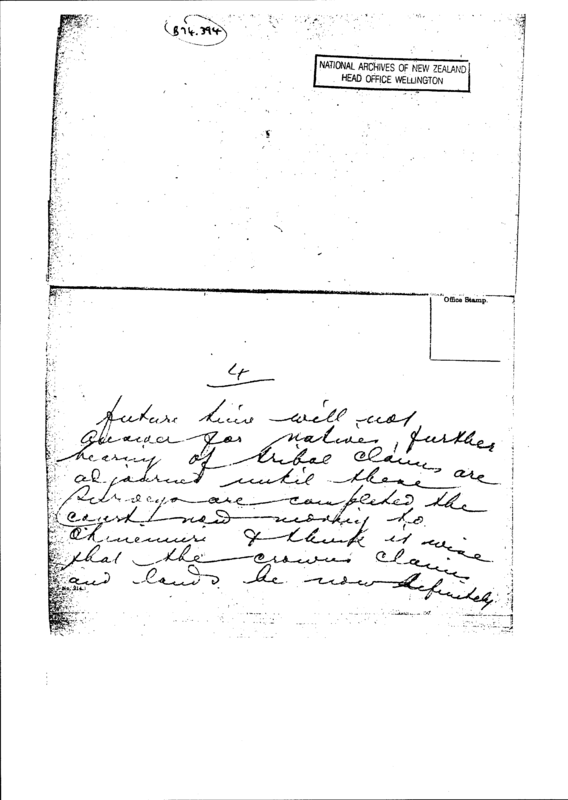 B74.394
NATIONAL ARCHIVES OF NEW ZEALAND
HEAD OFFICE WELLINGTON
Office Stamp.
4
future time will not
answer for natives, further
hearing of tribal claims are
adjourned until these
surveys are completed the
court now moving to
Ohinemuri & think it wise
that the crowns claims
and lands be now definitely